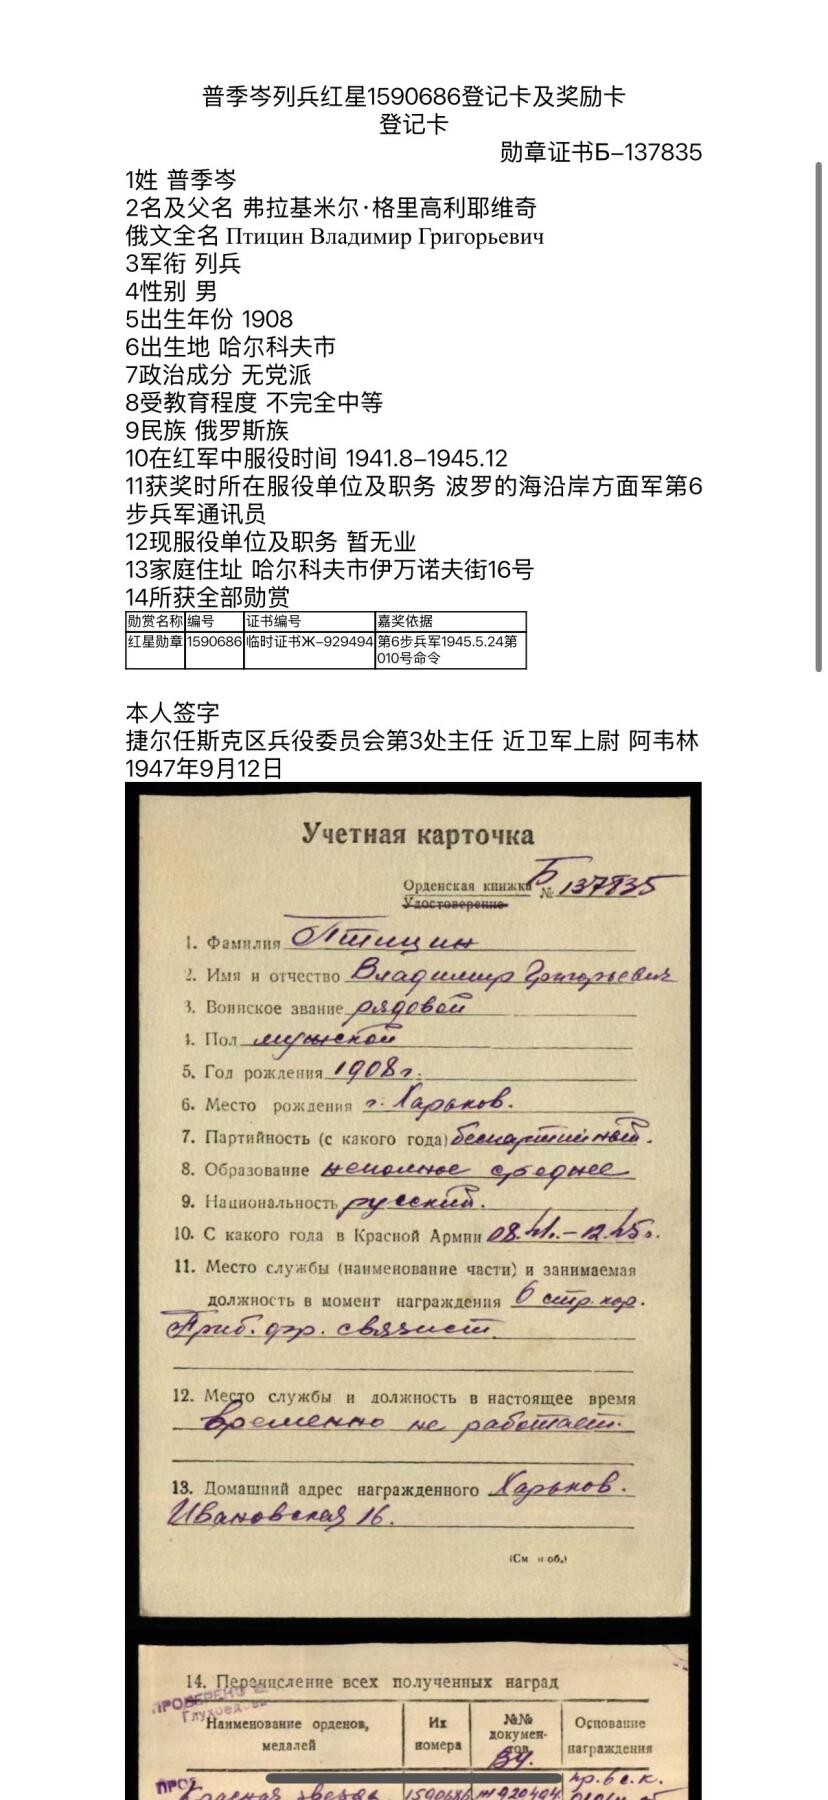 普季岑列兵红星1590686登记卡及奖励卡
登记卡
勋章证书Б–137835
1姓 普季岑
2名及父名 弗拉基米尔·格里高利耶维奇
俄文全名 Птицин Владимир Григорьевич
3军衔 列兵
4性别 男
5出生年份 1908
6出生地 哈尔科夫市
7政治成分 无党派
8受教育程度 不完全中等
9民族 俄罗斯族
10在红军中服役时间 1941.8–1945.12
11获奖时所在服役单位及职务 波罗的海沿岸方面军第6
步兵军通讯员
12现服役单位及职务 暂无业
13家庭住址 哈尔科夫市伊万诺夫街16号
14所获全部勋赏
勋赏名称 编号 证书编号 嘉奖依据
红星勋章 1590686 临时证书Ж–929494 第6步兵军1945.5.24第
010号命令
本人签字
捷尔任斯克区兵役委员会第3处主任 近卫军上尉 阿韦林
1947年9月12日
Учетная карточка
Орденская книжка Б № 137835
Удостоверение
1. Фамилия Птицин
2. Имя и отчество Владимир Григорьевич
3. Воинское звание рядовой
4. Пол мужской
5. Год рождения 1908 г.
6. Место рождения г. Харьков.
7. Партийность (с какого года) беспартийный.
8. Образование неполное среднее
9. Национальность русский.
10. С какого года в Красной Армии 08.41.–12.45г.
11. Место службы (наименование части) и занимаемая
должность в момент награждения 6 стр. кор.
Приб. фр. связист.
12. Место службы и должность в настоящее время
временно не работает.
13. Домашний адрес награжденного Харьков.
Ивановская 16.
(См. н об.)
14. Перечисление всех полученных наград
ПРОВЕРЕНО
Наименование орденов,
медалей
Их
номера
№№
докумен-
тов
Основание
награждения
Красная звезда 1590686 Ж929494 пр. 6 с. к.